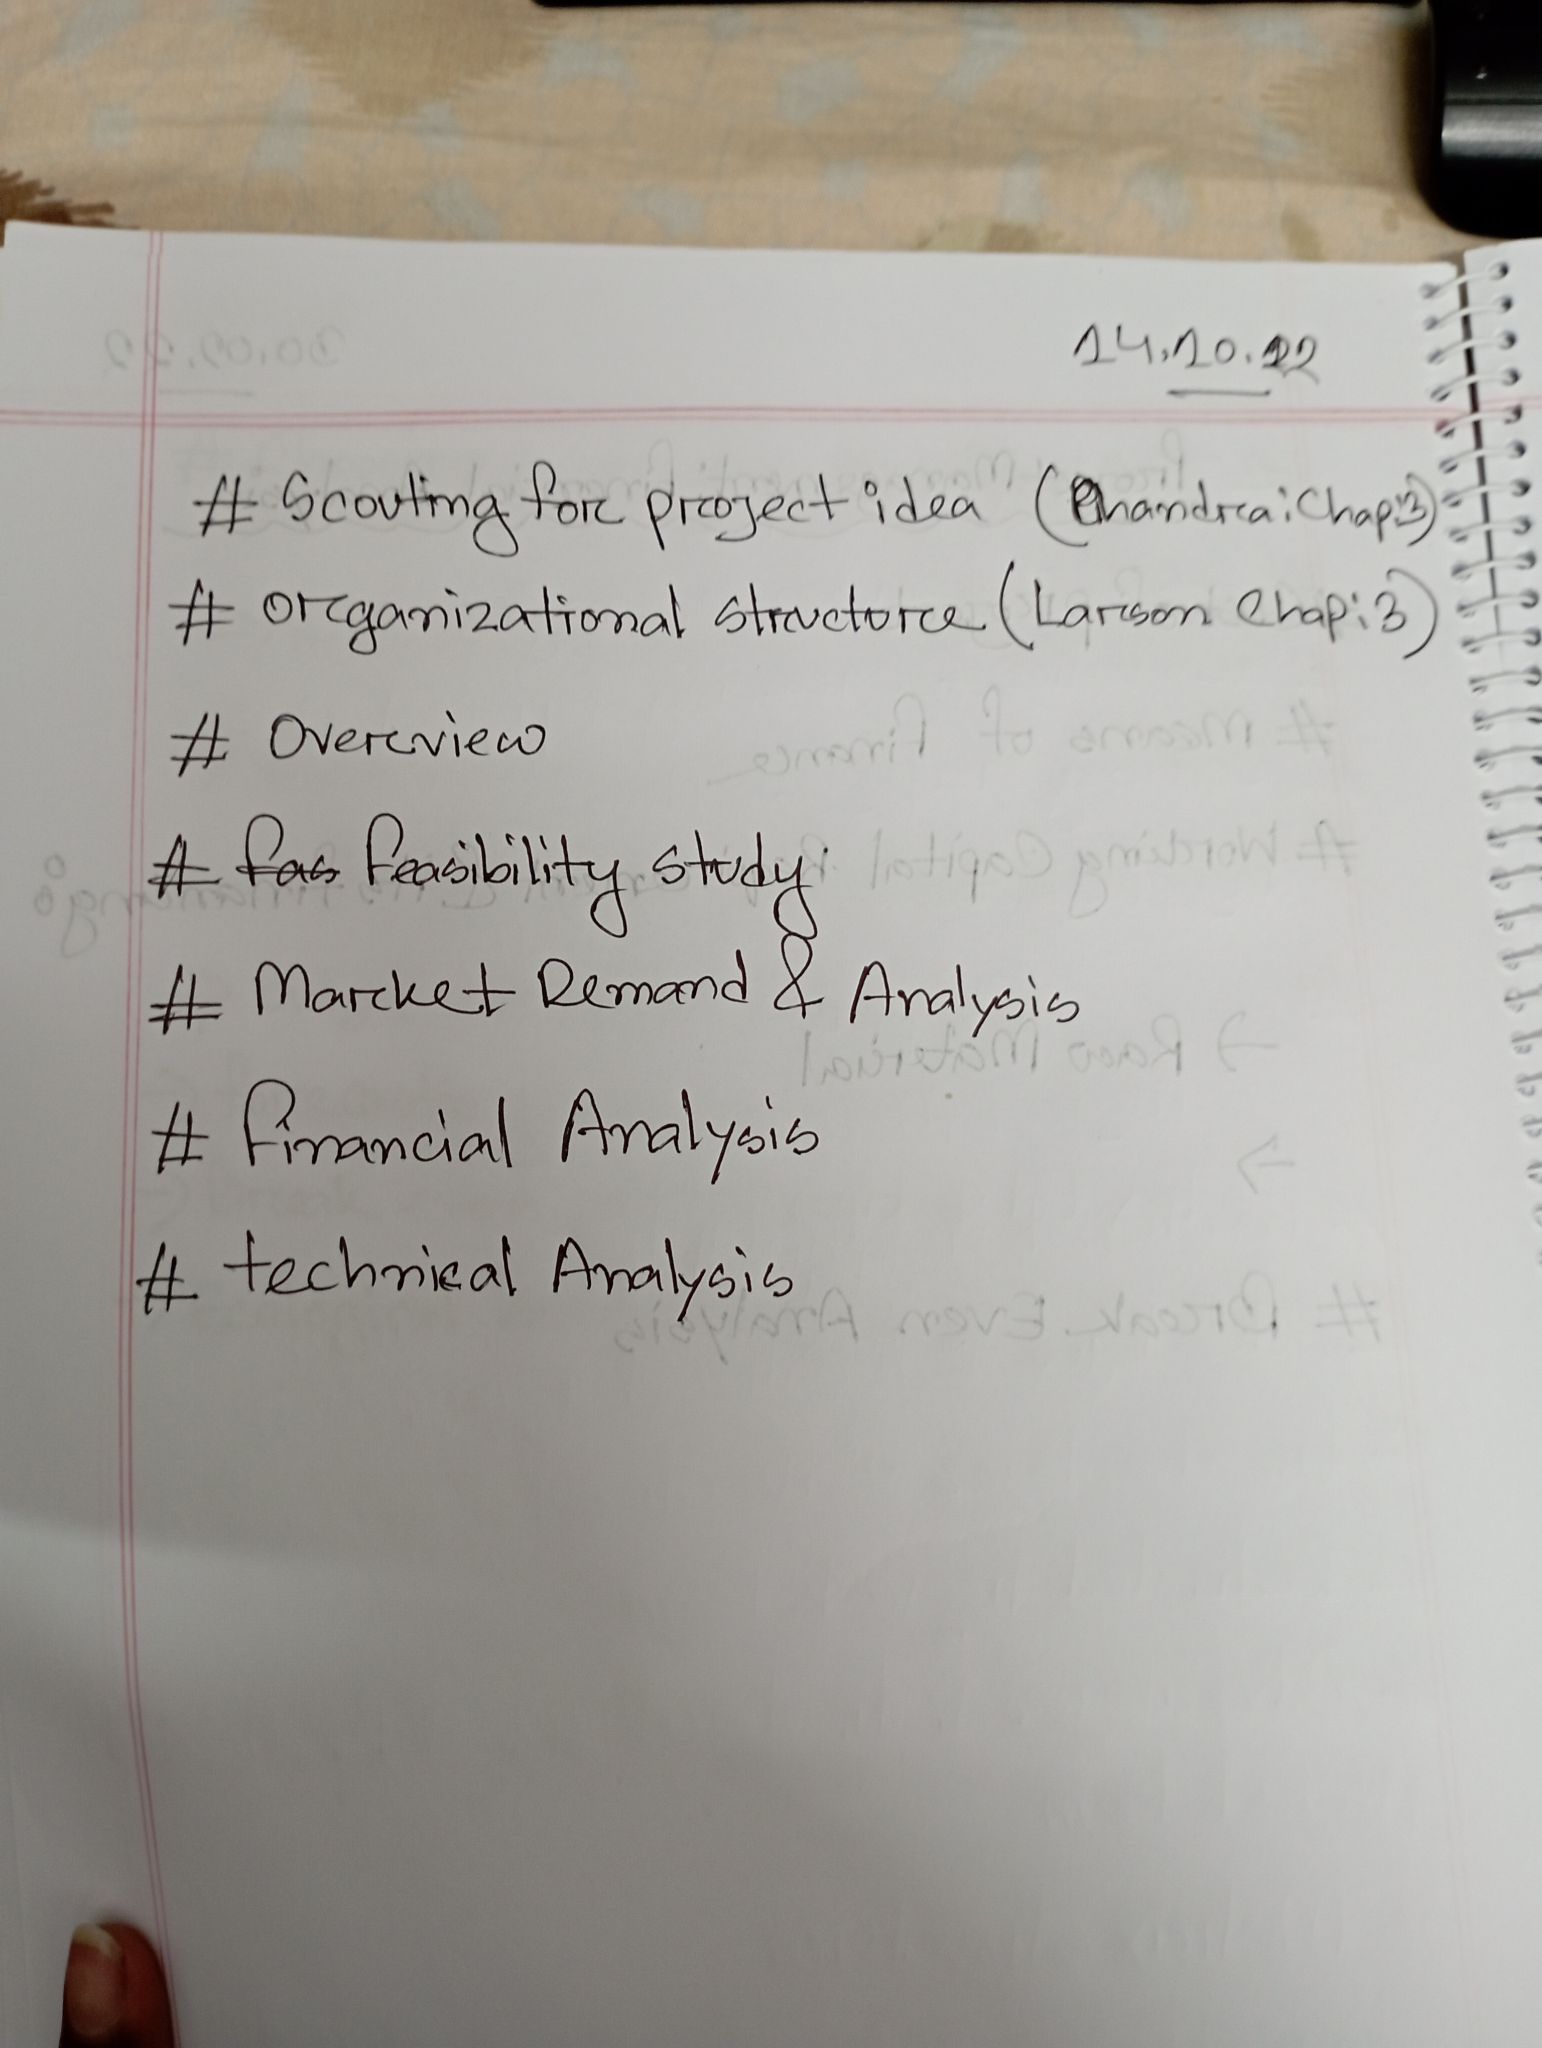 14.10.22
# Scouting for project idea (Chandra: Chap: 3)
# Organizational structure (Larson Chap: 3)
# Overview
# fas feasibility study
# Market Demand & Analysis
# financial Analysis
# technical Analysis